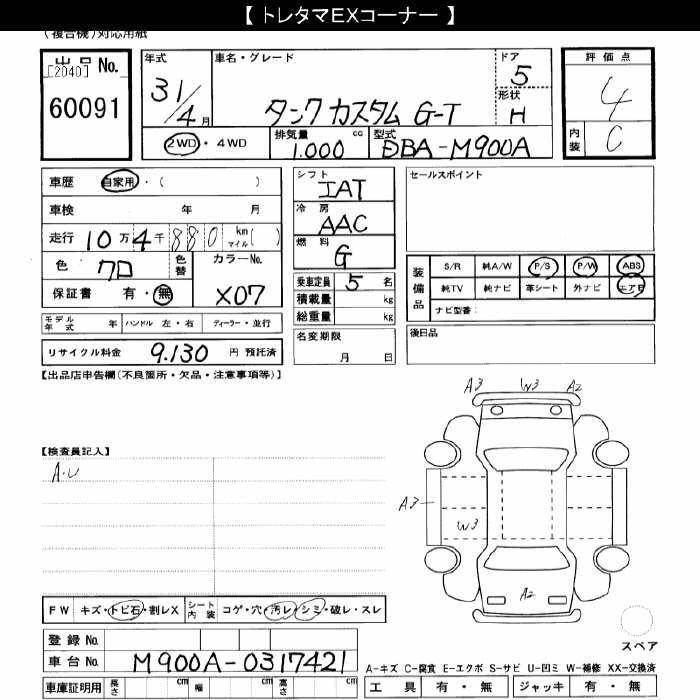 【 トレタマEXコーナー 】
(複合機)対応用紙
出品 No. [2040] 60091
年式 31/4月
車名・グレード タンク カスタム G-T
ドア 5
形状 H
評価点 4
内装 C
2WD・4WD
排気量 1.000 cc
型式 DBA-M900A
車歴 自家用・( )
車検 年 月
走行 10万4千880 km マイル( )
色 クロ 色替 カラーNo. X07
保証書 有・無
モデル年式 年 ハンドル 左・右 ディーラー・並行
リサイクル料金 9.130 円 預託済
シフト IAT
冷房 AAC
燃料 G
乗車定員 5 名
積載量 kg
総重量 kg
名変期限 月 日
セールスポイント
装備品 S/R 純A/W P/S P/W ABS
純TV 純ナビ 革シート 外ナビ エアB
ナビ型番:
後日品
【出品店申告欄(不良箇所・欠品・注意事項等)】
【検査員記入】
A・U
A3 W3 A2
A3
W3
A2
スペア
FW キズ・トビ石・割レX シート内装 コゲ・穴・汚レ・シミ・破レ・スレ
登録 No.
車台 No. M900A-0317421
車庫証明用 長さ cm 幅 cm 高さ cm
A-キズ C-腐食 E-エクボ S-サビ U-凹ミ W-補修 XX-交換済
工具 有・無 ジャッキ 有・無